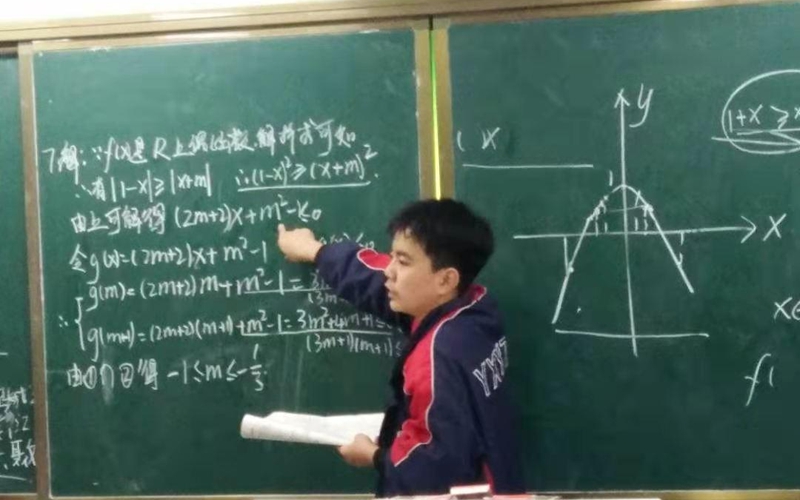 7.解:∵f(x)是R上偶函数,解析式可知
∴有|1-x|≥|x+m| ∴(1-x)²≥(x+m)²
由上可解得(2m+2)x+m²-1≤0
令g(x)=(2m+2)x+m²-1
g(m)=(2m+2)m+m²-1=
∴
g(m+1)=(2m+2)(m+1)+m²-1=3m²+4m+1≤
(3m+1)(m+1)≤
由①②得 -1≤m≤-1/3
x
y
1
x
1+x≥
x∈
f(
YXYZ